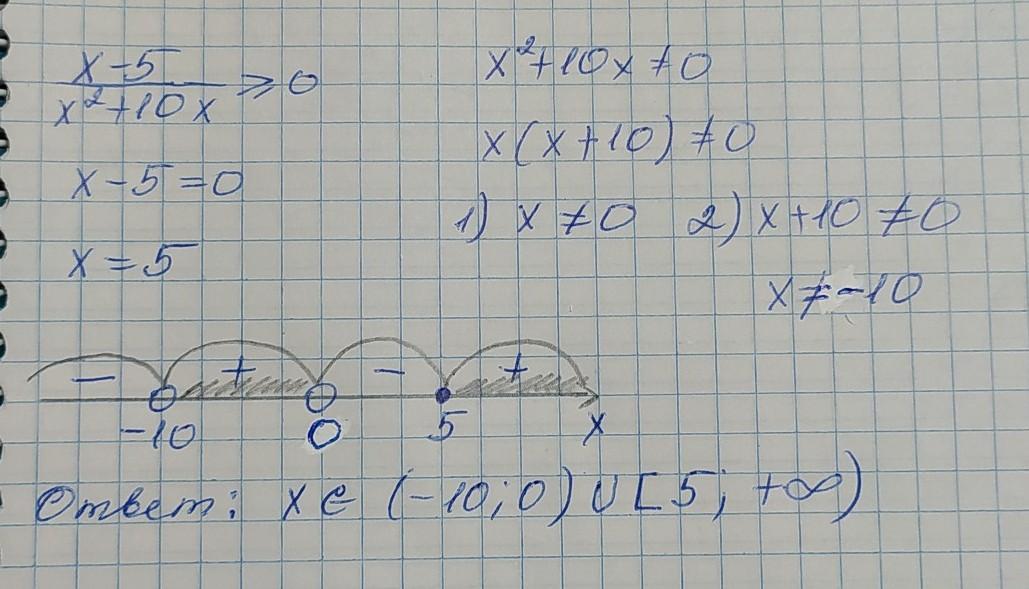 x-5
x²+10x ≥ 0
x-5=0
x=5
x²+10x≠0
x(x+10)≠0
1) x≠0 2) x+10≠0
x≠-10
- + - +
-10 0 5 x
Ответ: x∈(-10;0)∪[5;+∞)